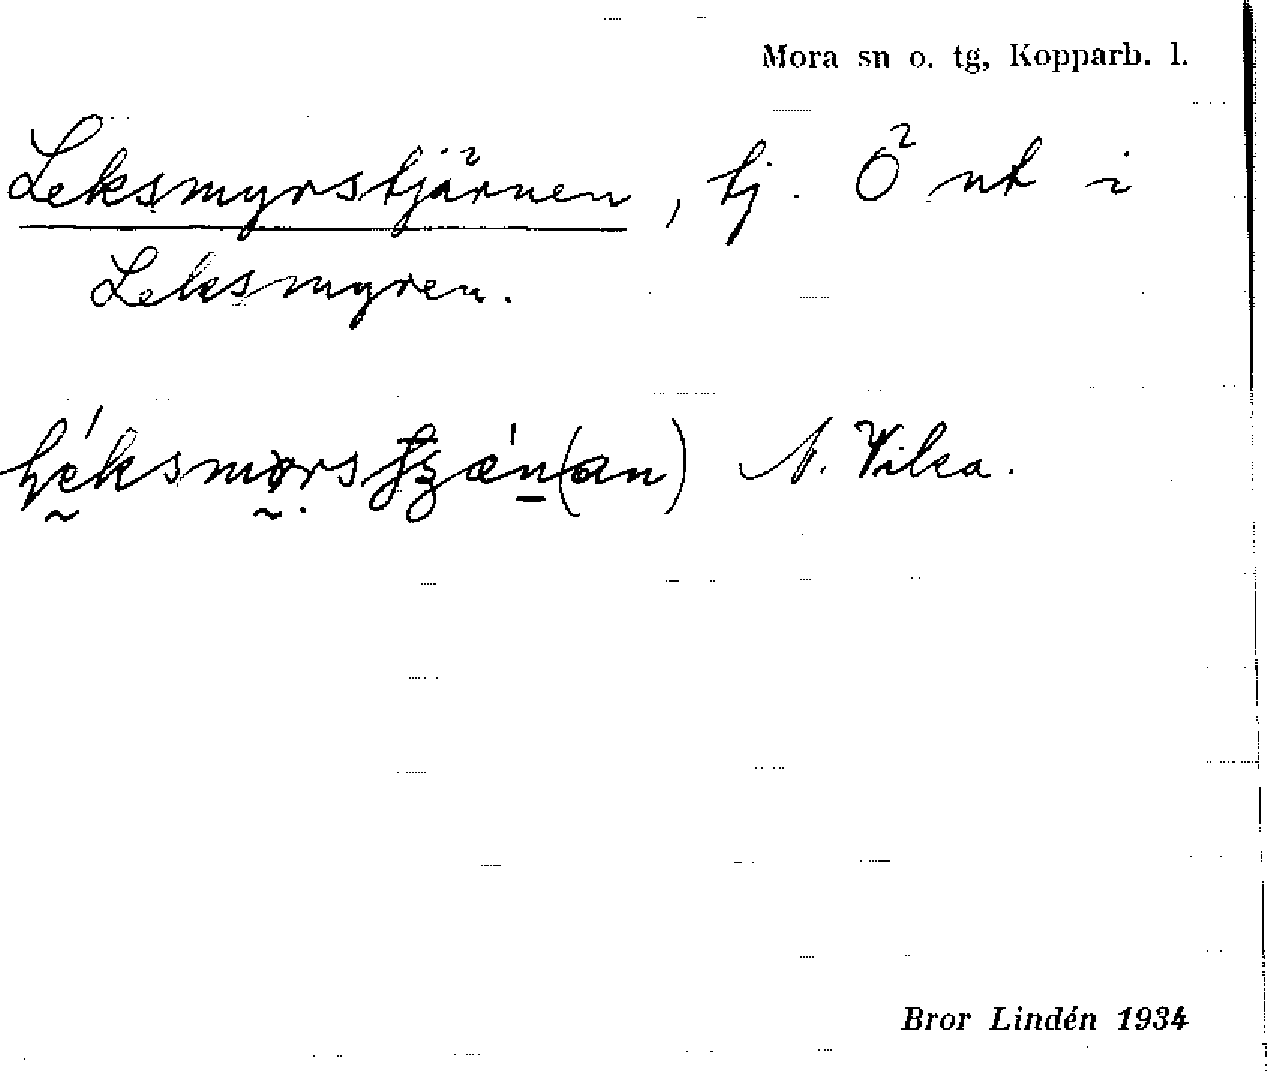 Mora sn o. tg, Kopparb. l.
Leksmyrstjärnen, tj. Ö nt i
Leksmyren.
N. Vika.
Bror Lindén 1934